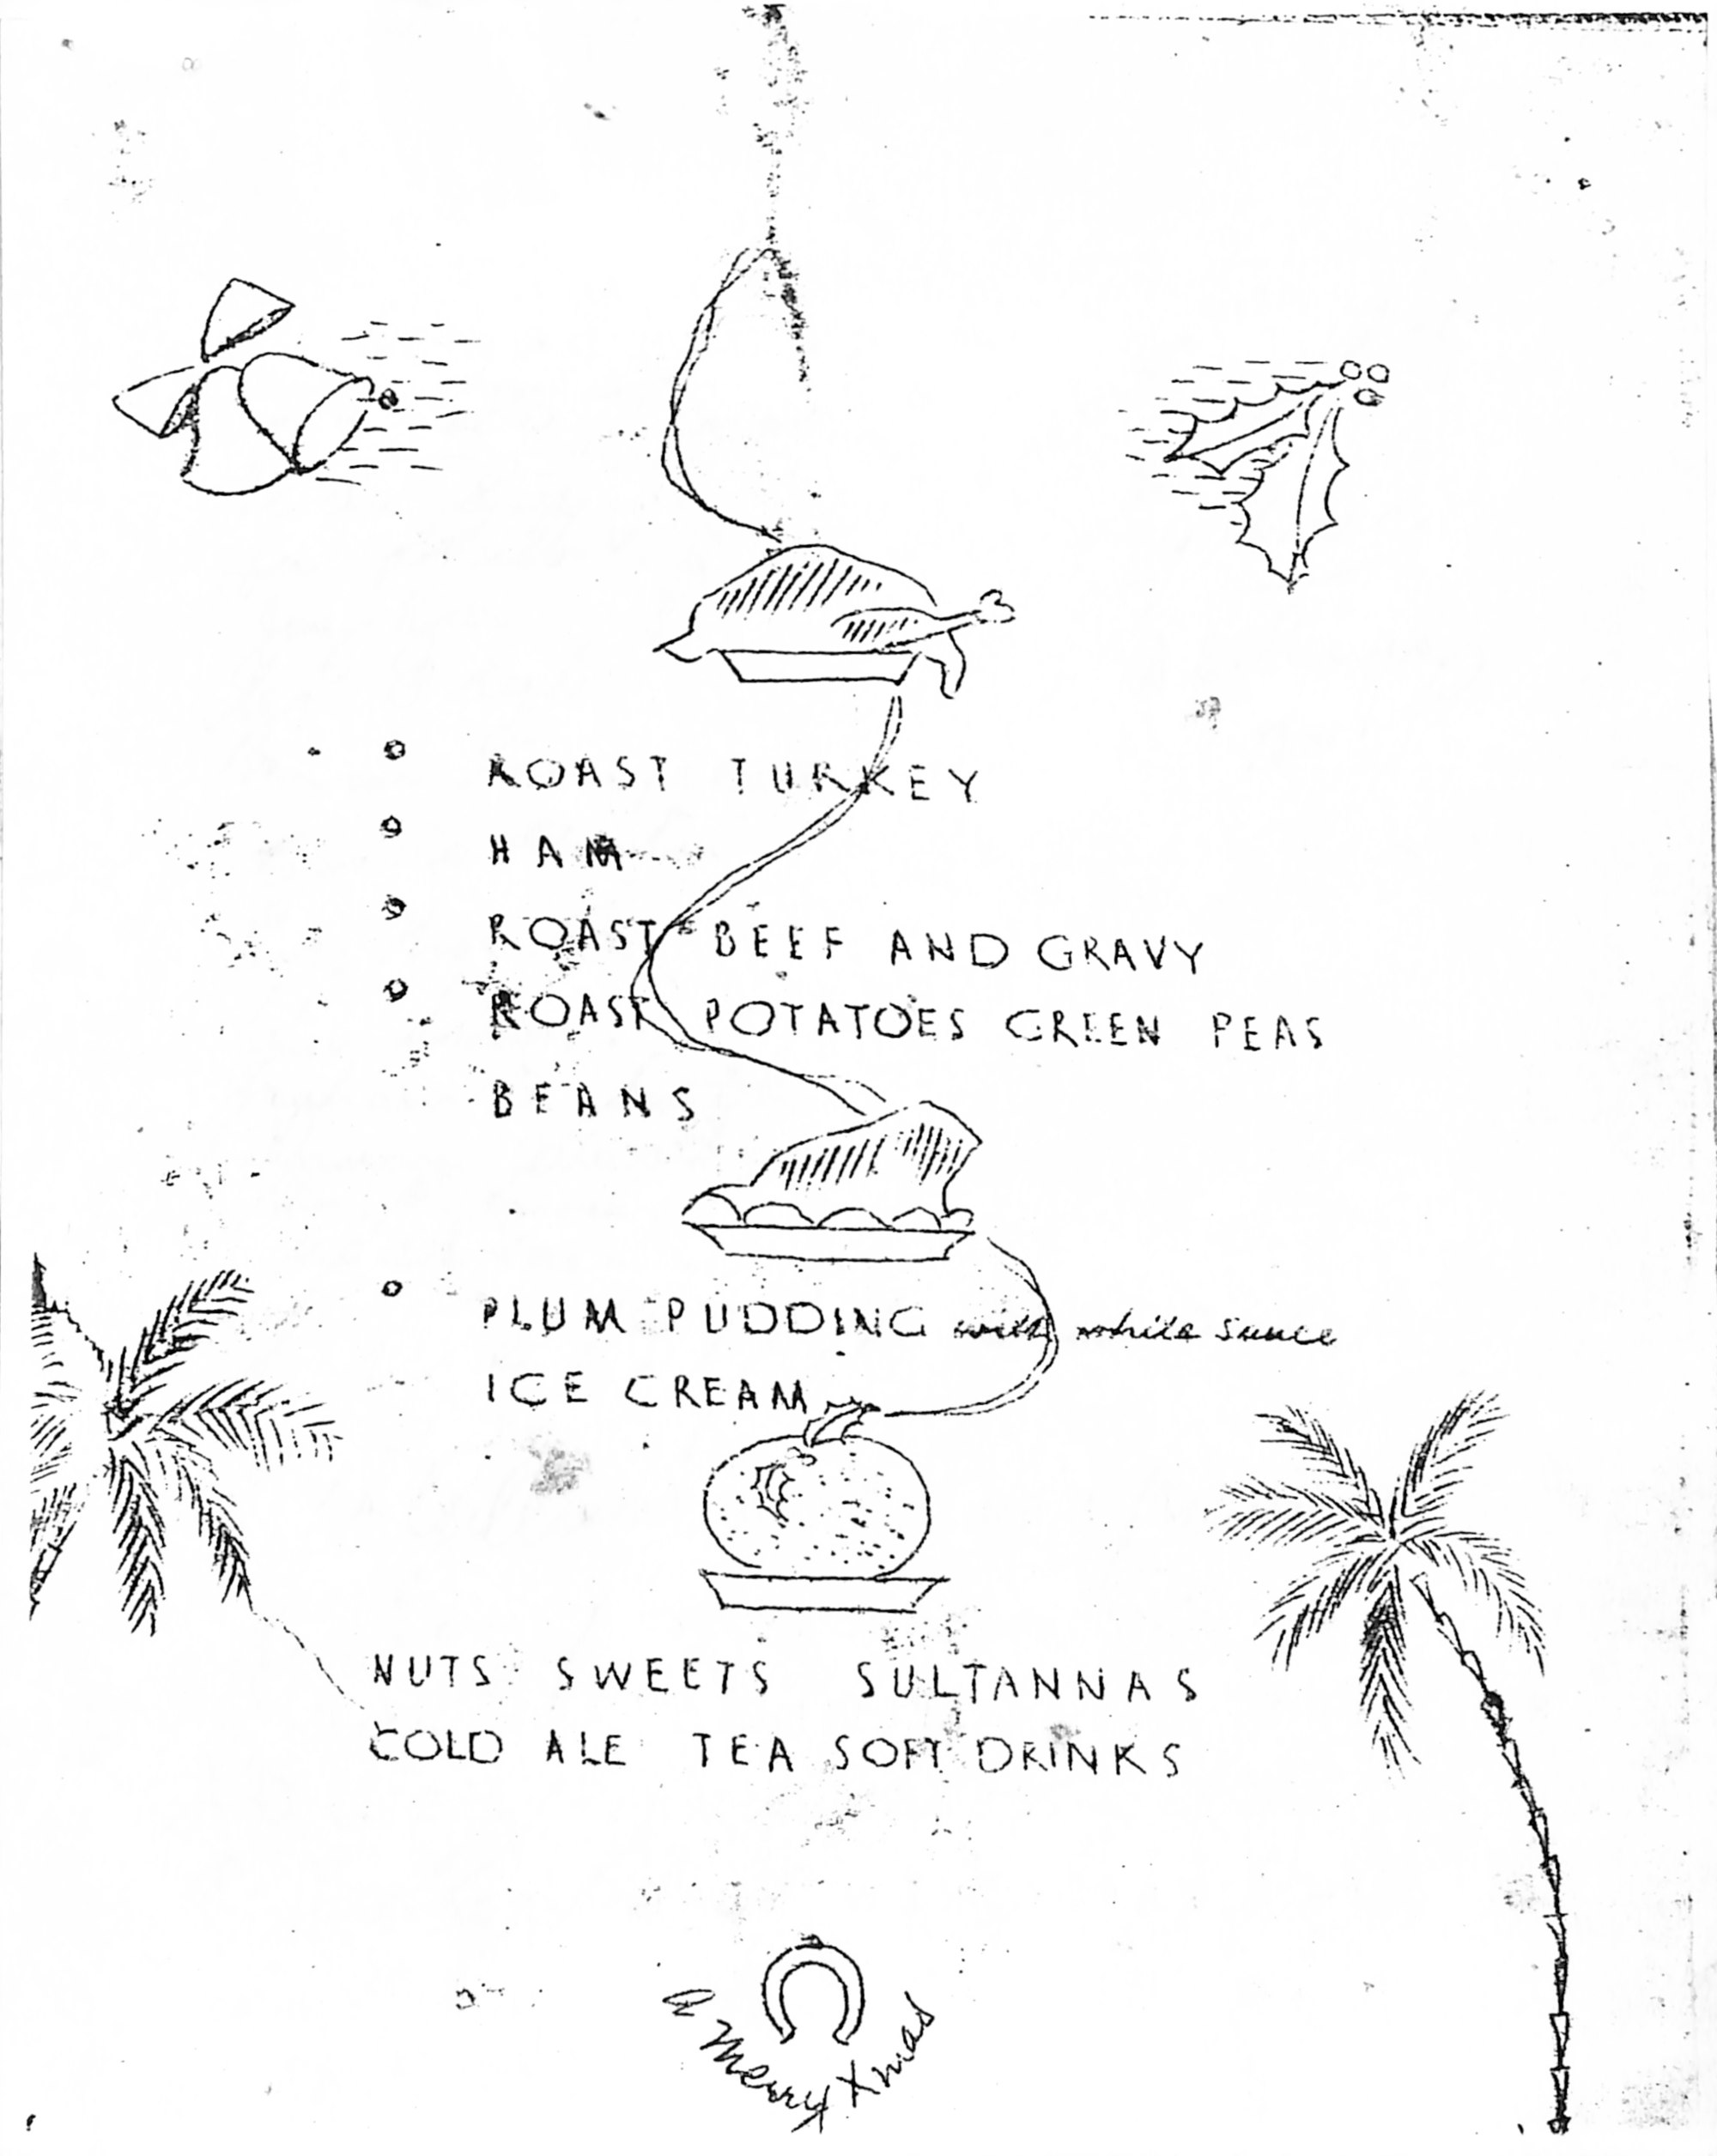 ROAST TURKEY
HAM
ROAST BEEF AND GRAVY
ROAST POTATOES GREEN PEAS
BEANS
PLUM PUDDING with white sauce
ICE CREAM
NUTS SWEETS SULTANNAS
COLD ALE TEA SOFT DRINKS
a Merry Xmas